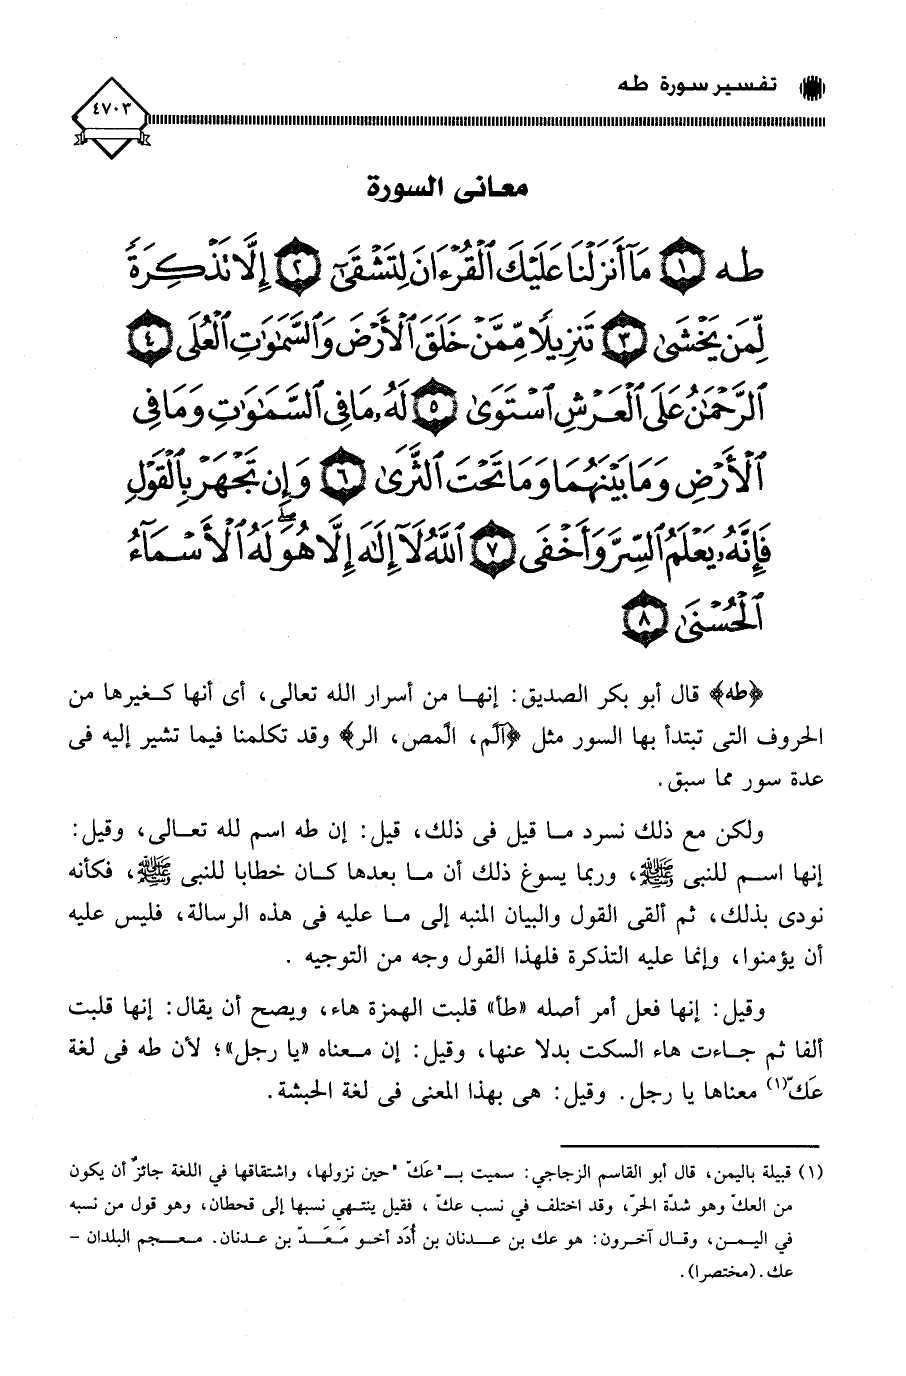 تفسير سورة طه
٤٧٠٣
معانى السورة
طه ١ مَآ أَنزَلْنَا عَلَيْكَ ٱلْقُرْءَانَ لِتَشْقَىٰٓ ٢ إِلَّا تَذْكِرَةً
لِّمَن يَخْشَىٰ ٣ تَنزِيلًا مِّمَّنْ خَلَقَ ٱلْأَرْضَ وَٱلسَّمَٰوَٰتِ ٱلْعُلَى ٤
ٱلرَّحْمَٰنُ عَلَى ٱلْعَرْشِ ٱسْتَوَىٰ ٥ لَهُۥ مَا فِى ٱلسَّمَٰوَٰتِ وَمَا فِى
ٱلْأَرْضِ وَمَا بَيْنَهُمَا وَمَا تَحْتَ ٱلثَّرَىٰ ٦ وَإِن تَجْهَرْ بِٱلْقَوْلِ
فَإِنَّهُۥ يَعْلَمُ ٱلسِّرَّ وَأَخْفَى ٧ ٱللَّهُ لَآ إِلَٰهَ إِلَّا هُوَ ۖ لَهُ ٱلْأَسْمَآءُ
ٱلْحُسْنَىٰ ٨
﴿طه﴾ قال أبو بكر الصديق: إنهـا من أسرار الله تعالى، أى أنها كـغيرها من
الحروف التى تبتدأ بها السور مثل ﴿الٓم، الٓمص، الر﴾ وقد تكلمنا فيما تشير إليه فى
عدة سور مما سبق.
ولكن مع ذلك نسرد مـا قيل فى ذلك، قيل: إن طه اسم لله تعـالى، وقيل:
إنها اسـم للنبى ﷺ، وربما يسوغ ذلك أن مـا بعدها كـان خطابا للنبى ﷺ، فكأنه
نودى بذلك، ثم ألقى القول والبيان المنبه إلى مـا عليه فى هذه الرسالة، فليس عليه
أن يؤمنوا، وإنما عليه التذكرة فلهذا القول وجه من التوجيه .
وقيل: إنها فعل أمر أصله «طأ» قلبت الهمزة هاء، ويصح أن يقال: إنها قلبت
ألفا ثم جـاءت هاء السكت بدلا عنها، وقيل: إن مـعناه «يا رجل»؛ لأن طه فى لغة
عَكّ(١) معناها يا رجل. وقيل: هى بهذا المعنى فى لغة الحبشة.
(١) قبيلة باليمن، قال أبو القاسم الزجاجي: سميت بــ"عَكّ "حين نزولها، واشتقاقها في اللغة جائزٌ أن يكون
من العكّ وهو شدّة الحرّ، وقد اختلف في نسب عكّ ، فقيل ينتـهي نسبها إلى قحطان، وهو قول من نسبه
في اليمـن، وقـال آخـرون: هو عك بن عـدنان بن أُدَد أخـو مَـعَـدّ بن عـدنان. مـعـجم البلدان –
عك.(مختصرا).